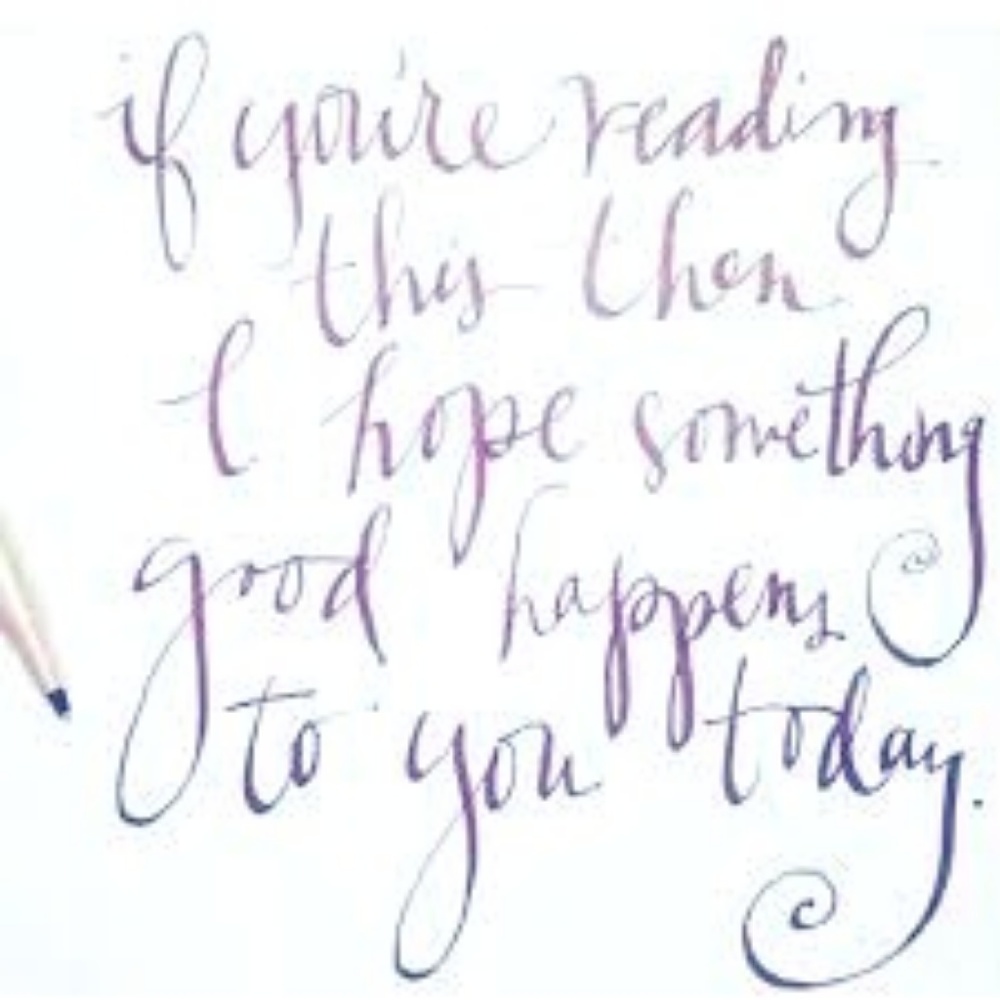 if you're reading
this then
I hope something
good happens
to you today.